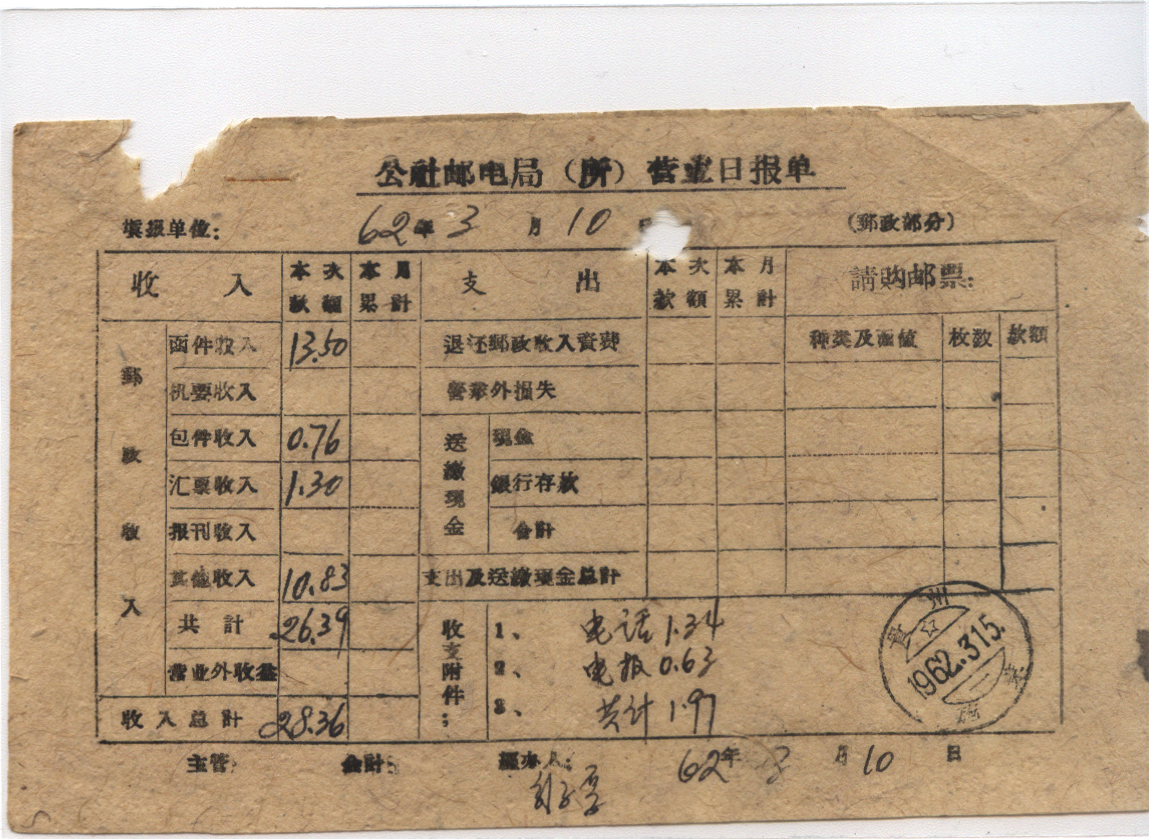 公社邮电局（所）营业日报单
填报单位： 62年3月10
（郵政部分）
收入 本次款額 本月累計 支出 本次款額 本月累計 請购邮票：
郵政收入 函件收入 13.50 退还郵政收入資費 种类及面值 枚数 款額
机要收入 营業外損失
包件收入 0.76 送繳現金 現金
汇票收入 1.30 銀行存款
报刊收入 合計
其他收入 10.83 支出及送繳現金总計
共計 26.39 收支附件： 1、 电话 1.34
营业外收益 2、 电报 0.63
收入总計 28.36 3、 共计 1.97
贵州
1962.3.15.
主管： 会計： 經办人： 62年3月10日